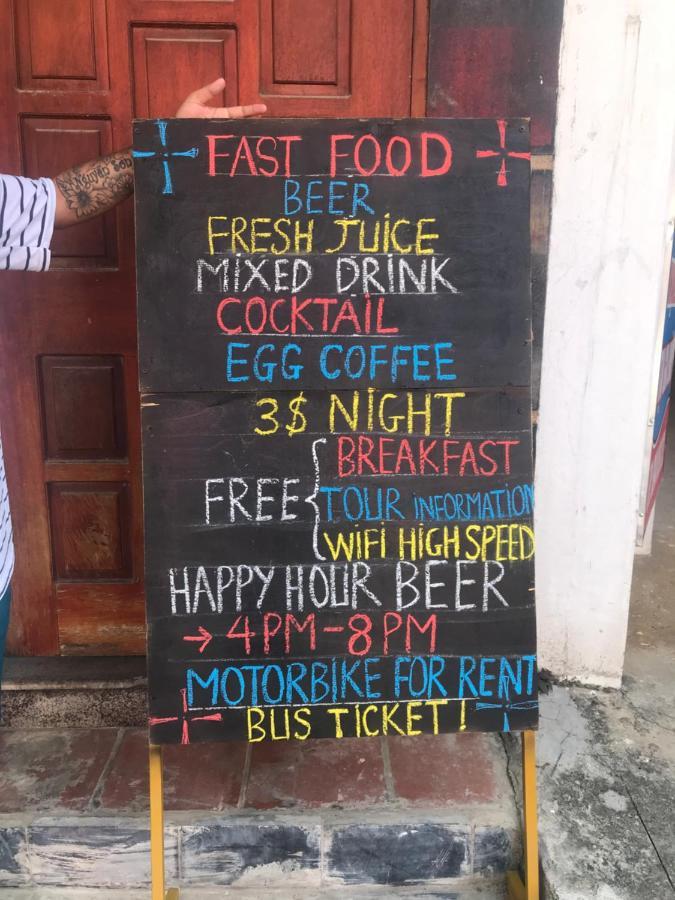 FAST FOOD
BEER
FRESH JUICE
MIXED DRINK
COCKTAIL
EGG COFFEE
3$ NIGHT
FREE
BREAKFAST
TOUR INFORMATION
WIFI HIGH SPEED
HAPPY HOUR BEER
→ 4PM-8PM
MOTORBIKE FOR RENT
BUS TICKET!